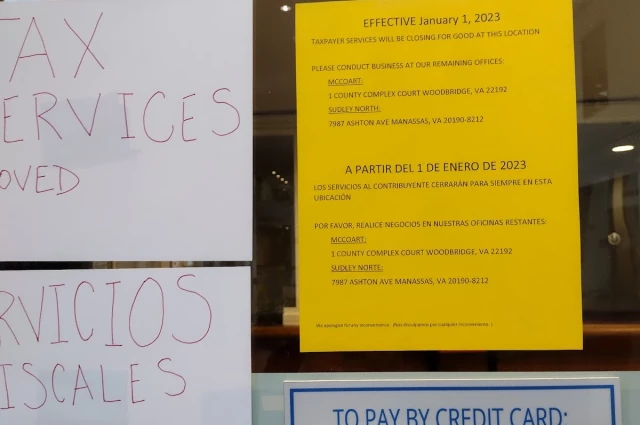 TAX
SERVICES
MOVED
SERVICIOS
FISCALES
EFFECTIVE January 1, 2023
TAXPAYER SERVICES WILL BE CLOSING FOR GOOD AT THIS LOCATION
PLEASE CONDUCT BUSINESS AT OUR REMAINING OFFICES:
MCCOART:
1 COUNTY COMPLEX COURT WOODBRIDGE, VA 22192
SUDLEY NORTH:
7987 ASHTON AVE MANASSAS, VA 20190-8212
A PARTIR DEL 1 DE ENERO DE 2023
LOS SERVICIOS AL CONTRIBUYENTE CERRARÁN PARA SIEMPRE EN ESTA
UBICACIÓN
POR FAVOR, REALICE NEGOCIOS EN NUESTRAS OFICINAS RESTANTES:
MCCOART:
1 COUNTY COMPLEX COURT WOODBRIDGE, VA 22192
SUDLEY NORTE:
7987 ASHTON AVE MANASSAS, VA 20190-8212
We apologize for any inconvenience. (Nos disculpamos por cualquier inconveniente.)
TO PAY BY CREDIT CARD: